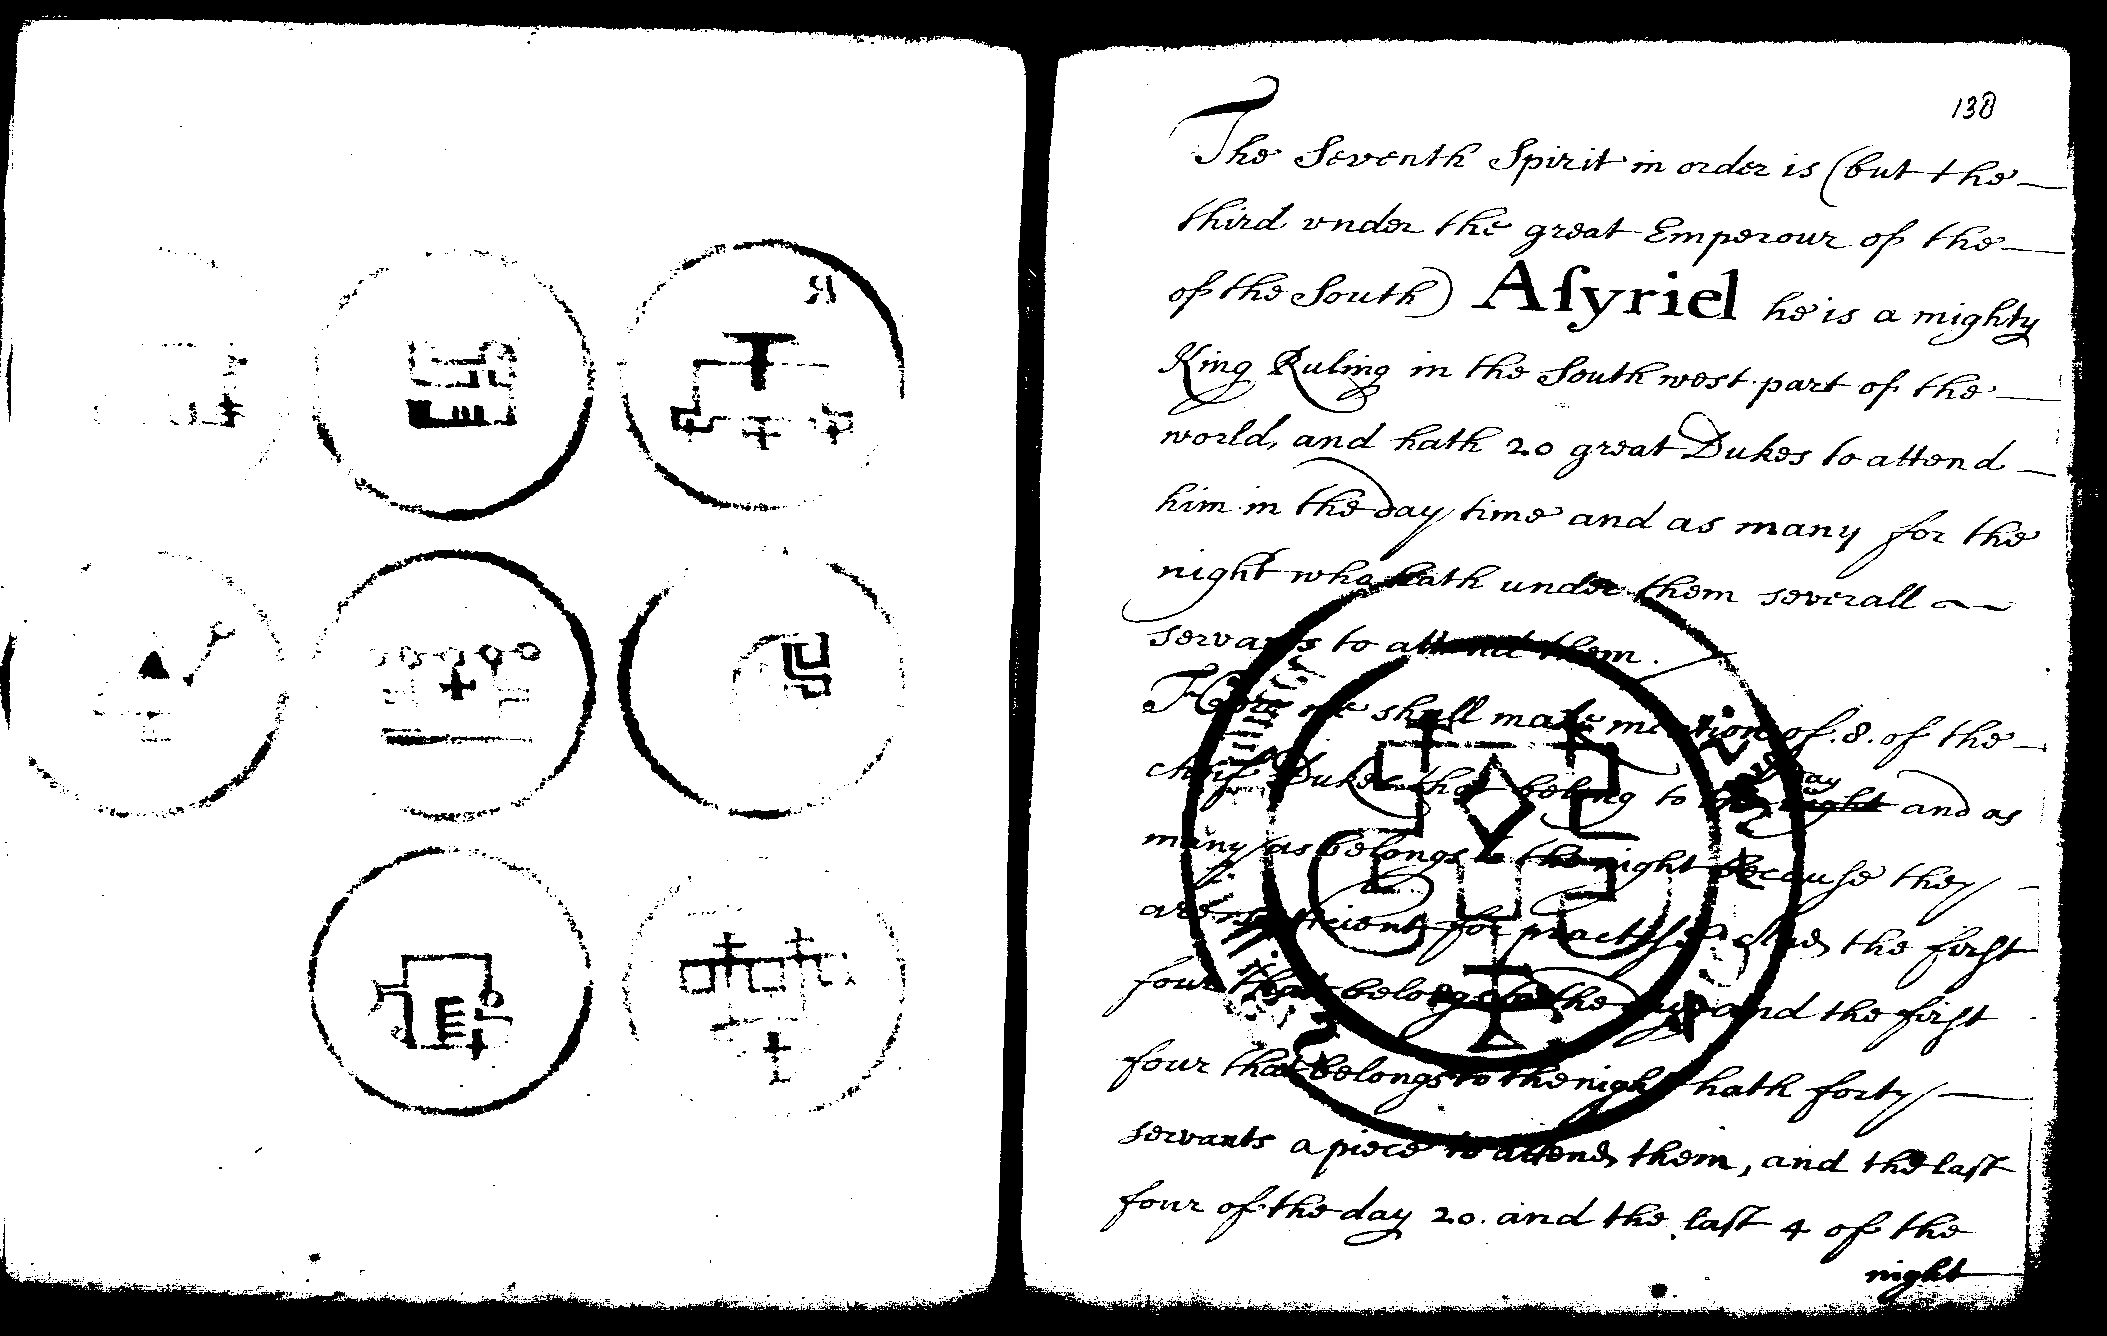 138
The Seventh Spirit in order is (but the
third vnder the great Emperour of the
of the South) Aſyriel he is a mighty
King Ruling in the Southwest part of the
world, and hath 20 great Dukes to attend
him in the day time and as many for the
night who hath under them severall
servants to attend them.
Here we shall make mention of .8. of the
cheif Dukes that belong to the night day and as
many as belongs to the night because they
are sufficient for practise the first
four that belongs to the day and the first
four that belongs to the night hath forty
servants a piece to attend them, and the last
four of the day 20. and the last 4 of the
night